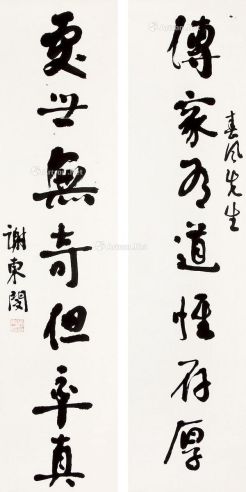 傳家有道惟存厚
春風先生
處世無奇但率真
謝東閔